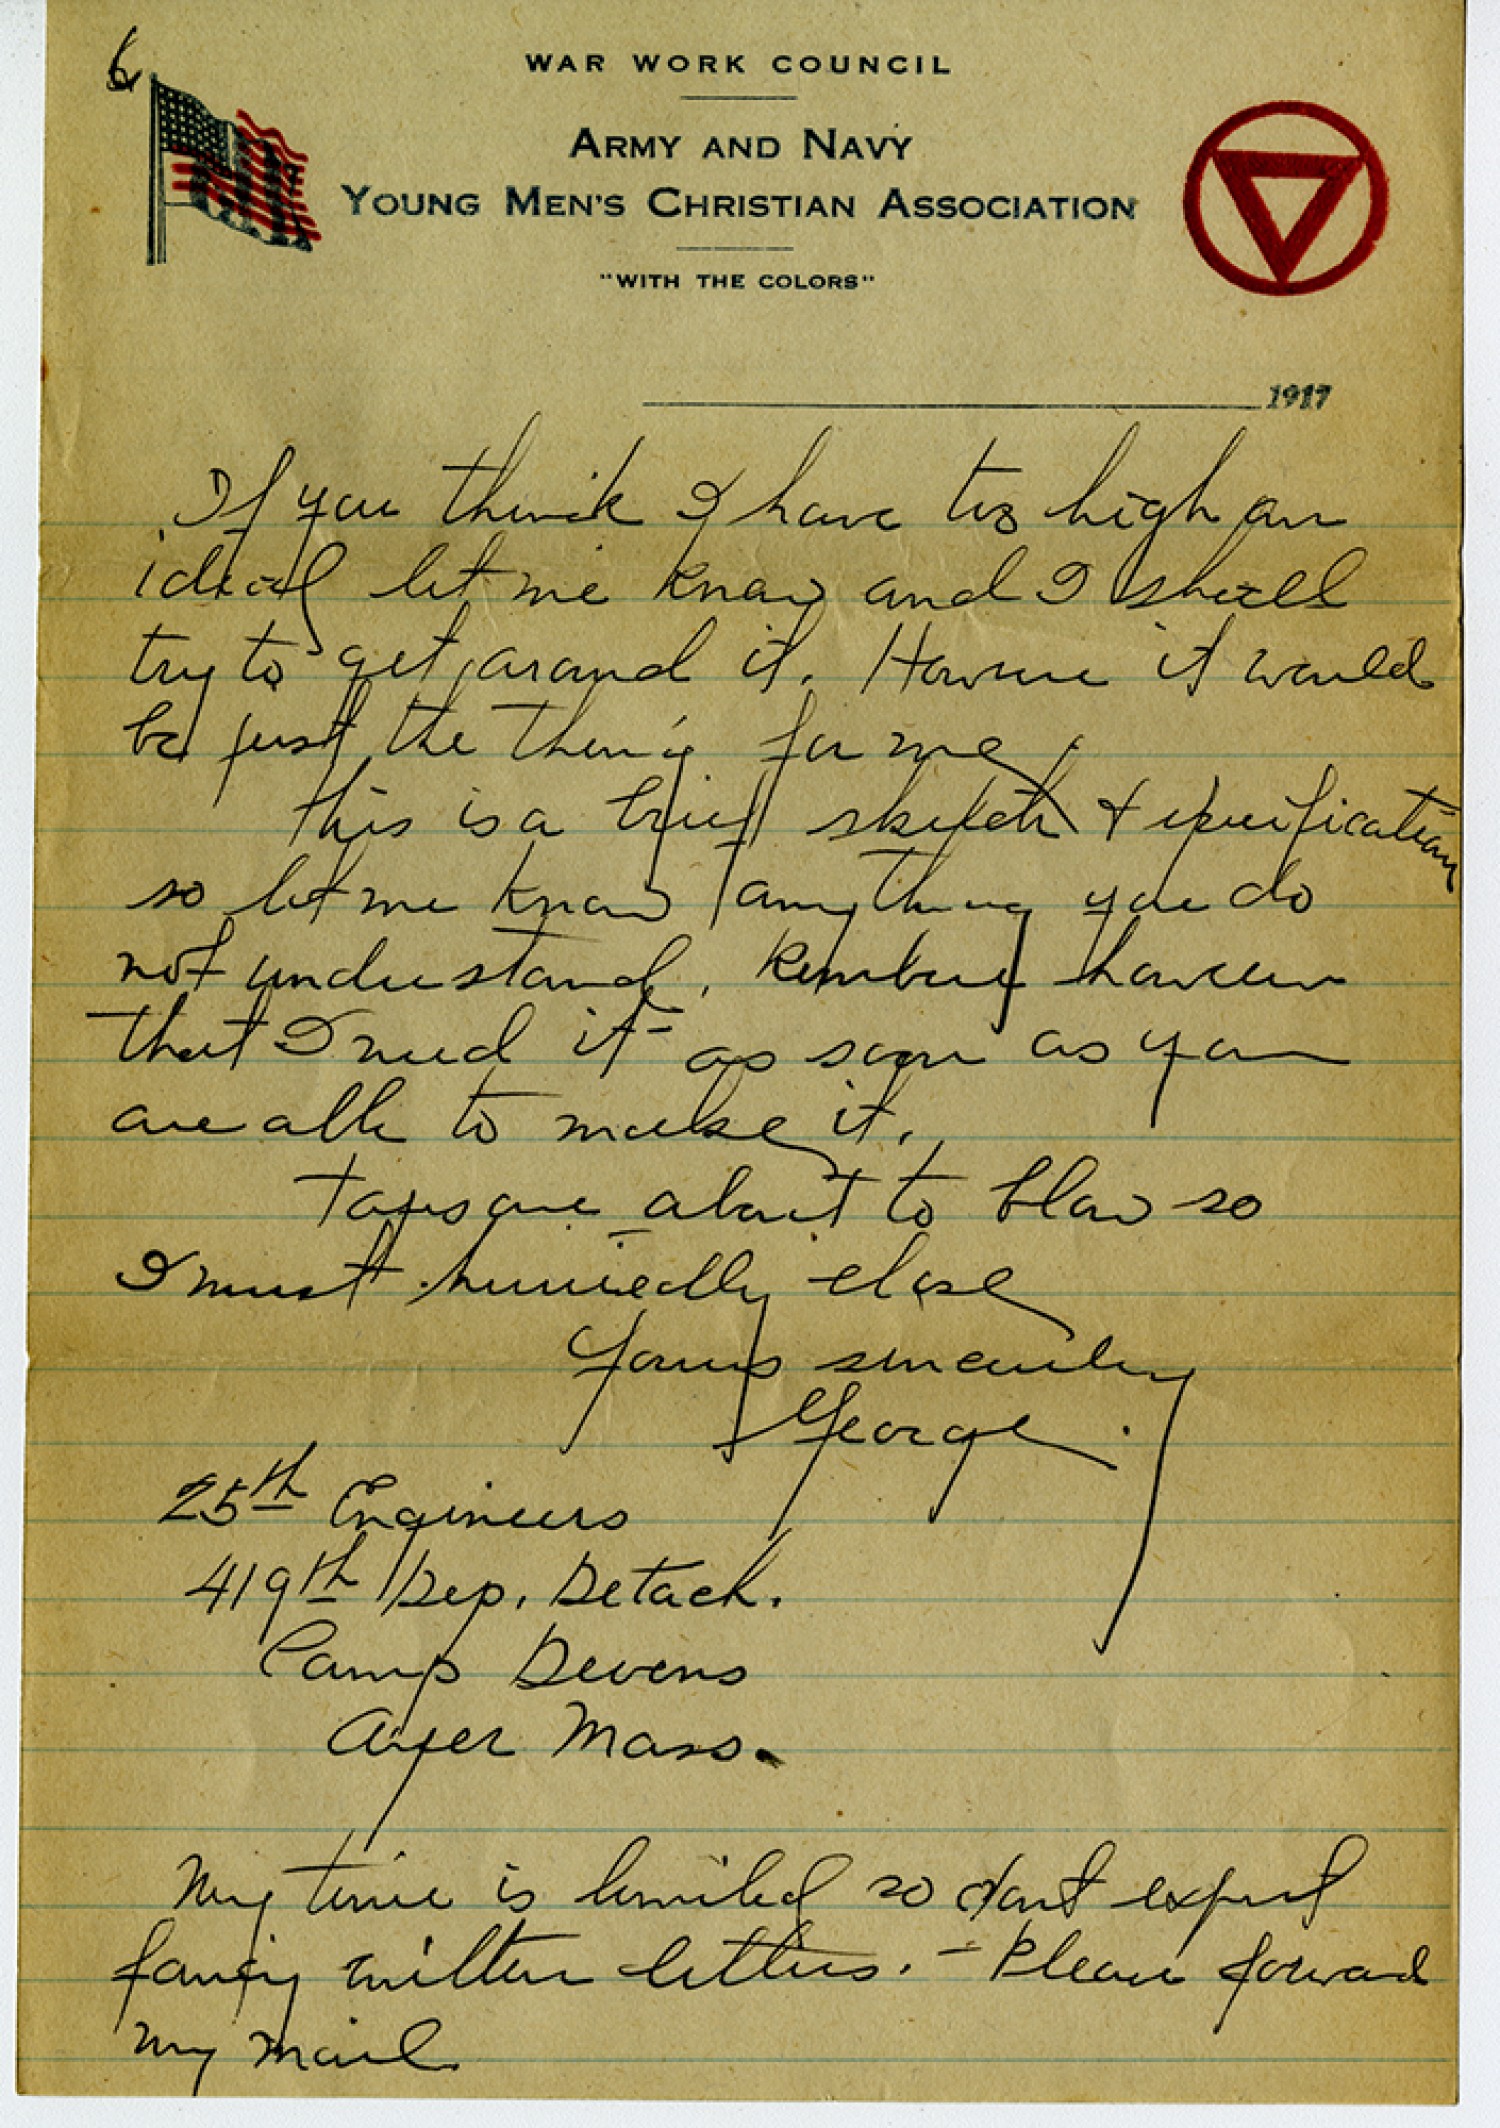 6
WAR WORK COUNCIL
ARMY AND NAVY
YOUNG MEN'S CHRISTIAN ASSOCIATION
"WITH THE COLORS"
1917
If you think I have too high an
ideal let me know and I shall
try to get around it. However it would
be just the thing for me.
This is a brief sketch + specification
so let me know anything you do
not understand. Remember however
that I need it as soon as you
are able to make it.
Taps are about to blow so
I must hurriedly close
Yours sincerely
George.
25th Engineers
419th Dep. Detach.
Camp Devens
Ayer Mass.
My time is limited so don't expect
fancy written letters. - Please forward
my mail